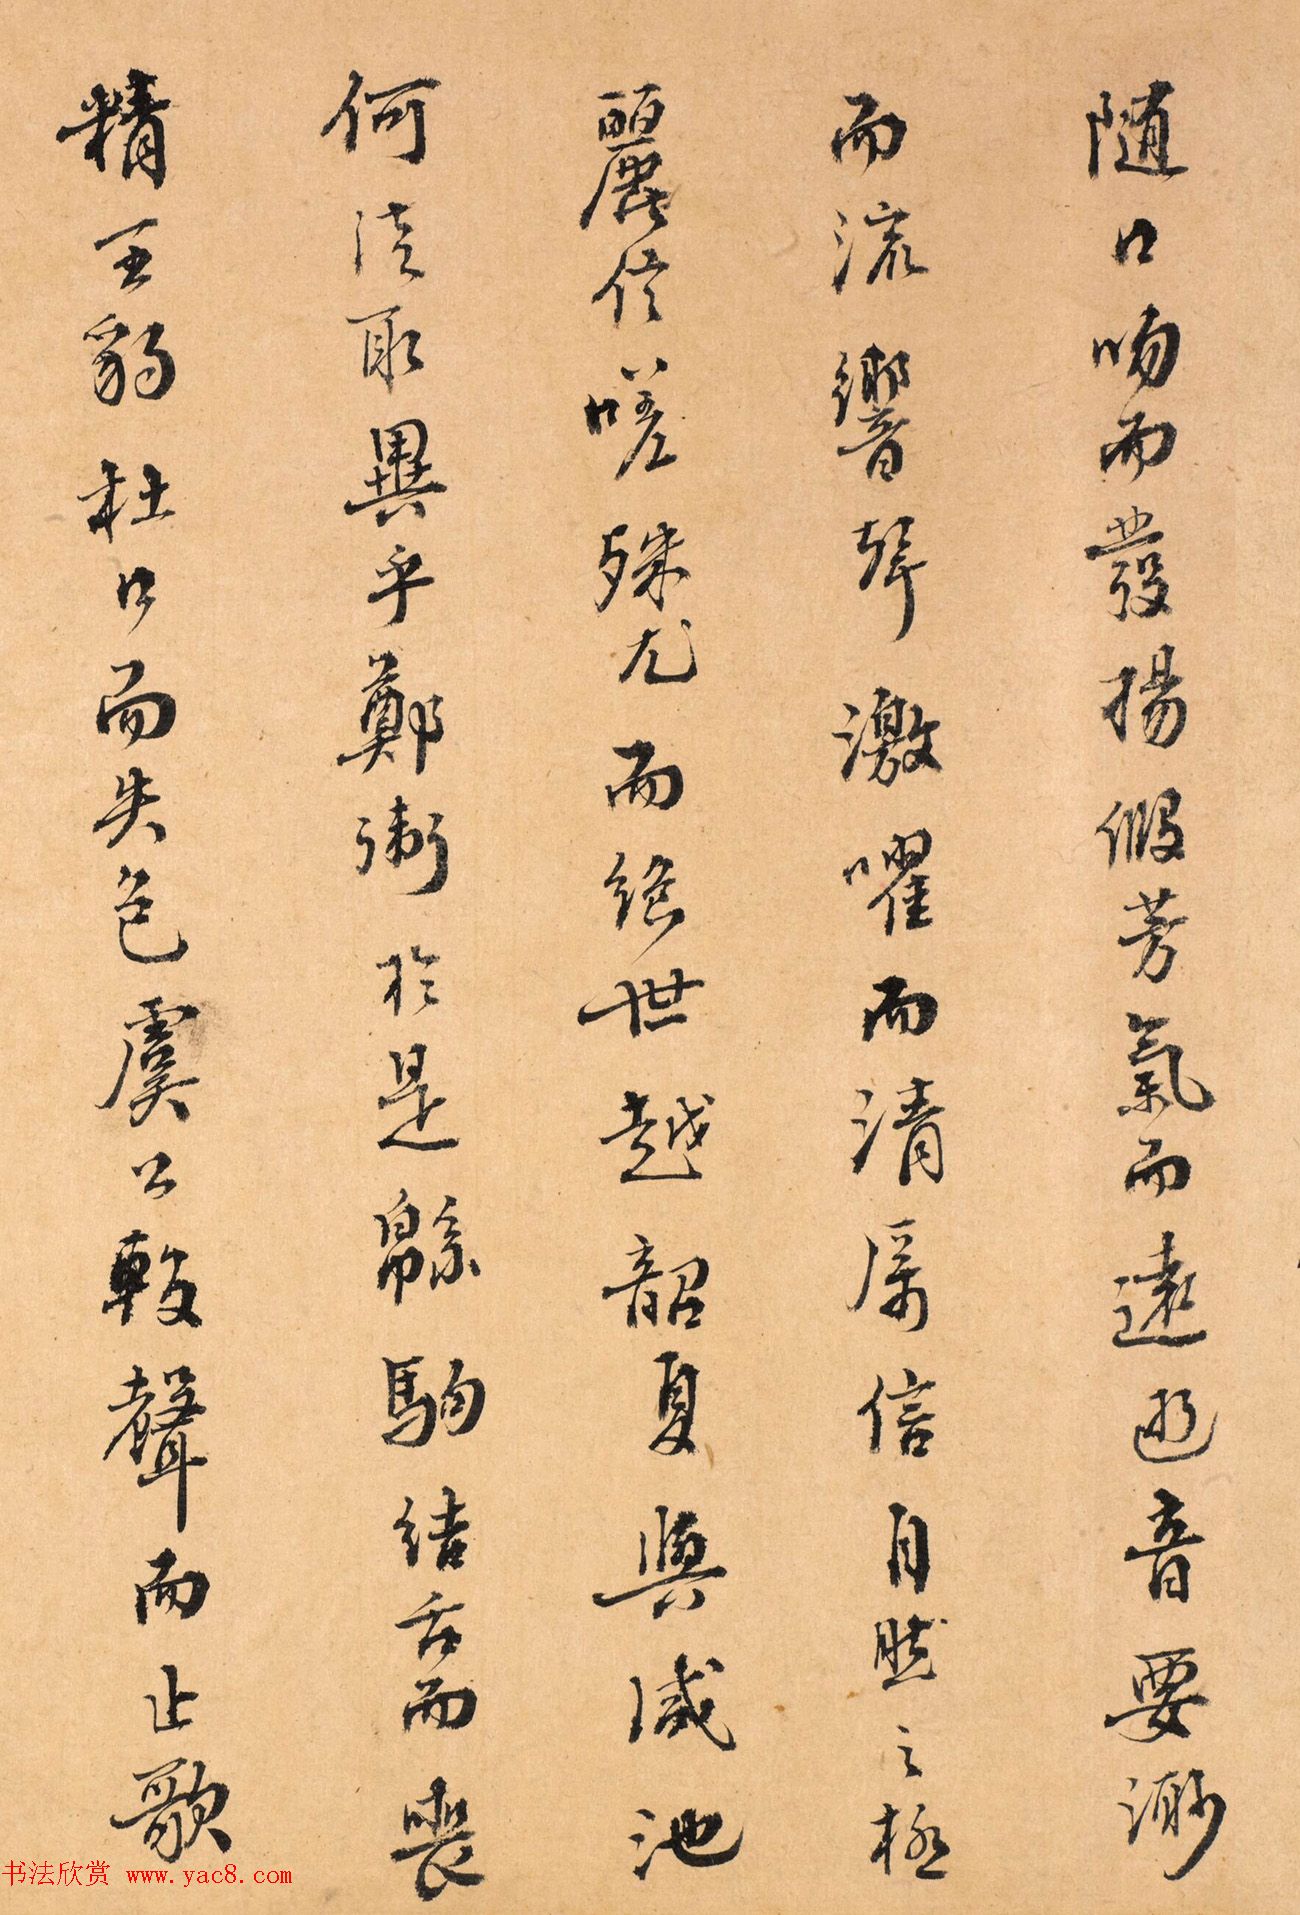 随口吻而發揚假芳氣而遠逝音要渺
而流響聲激嚁而清厲信自然之極
麗信嗟殊尤而絶世越韶夏與咸池
何徒取異乎鄭衛於是緜駒結舌而喪
精王豹杜口而失色虞公輟聲而止歌
书法欣赏 www.yac8.com